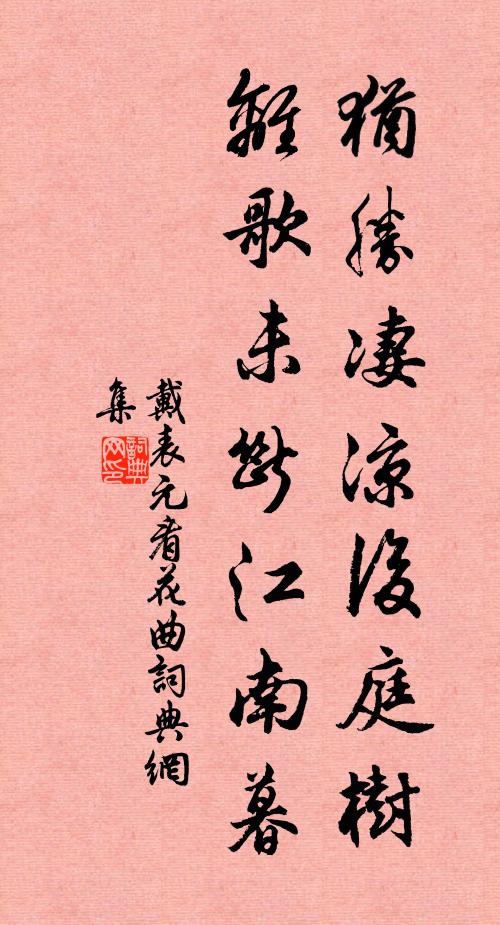 猶勝凄涼後庭樹
離歌未斷江南暮
戴表元看花曲詞典網
集
詞典網印